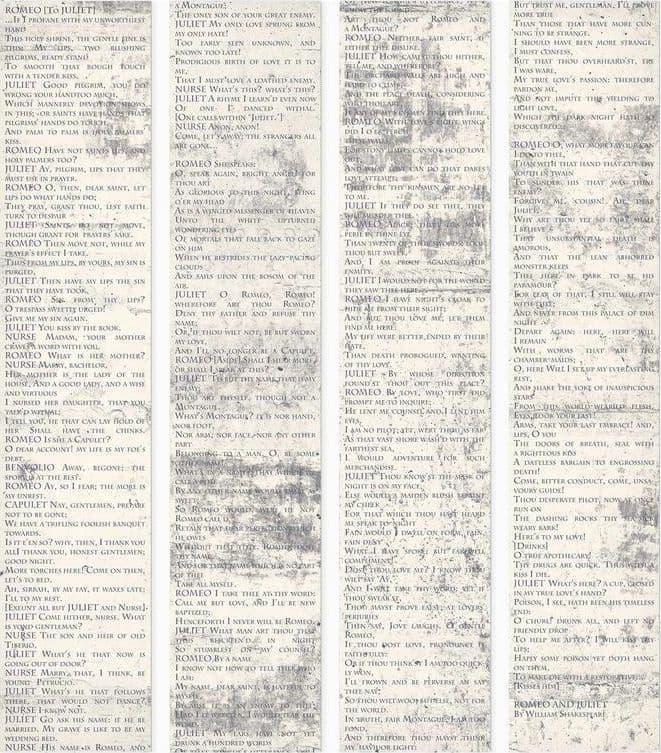 ROMEO [To JULIET]
...If I profane with my unworthiest
hand
This holy shrine, the gentle fine is
this: My lips, two blushing
pilgrims, ready stand
To smooth that rough touch
with a tender kiss.
JULIET Good pilgrim, you do
wrong your hand too much,
Which mannerly devotion shows
in this; for saints have hands that
pilgrims' hands do touch,
And palm to palm is holy palmers'
kiss.
ROMEO Have not saints lips, and
holy palmers too?
JULIET Ay, pilgrim, lips that they
must use in prayer.
ROMEO O, then, dear saint, let
lips do what hands do;
They pray, grant thou, lest faith
turn to despair
JULIET Saints do not move,
though grant for prayers' sake.
ROMEO Then move not, while my
prayer's effect I take.
Thus from my lips, by yours, my sin is
purged.
JULIET Then have my lips the sin
that they have took.
ROMEO Sin from thy lips?
O trespass sweetly urged!
Give me my sin again.
JULIET You kiss by the book.
NURSE Madam, your mother
craves a word with you.
ROMEO What is her mother?
NURSE Marry, bachelor,
Her mother is the lady of the
house, And a good lady, and a wise
and virtuous
I nursed her daughter, that you
talk'd withal;
I tell you, he that can lay hold of
her Shall have the chinks.
ROMEO Is she a Capulet?
O dear account! my life is my foe's
debt.
BENVOLIO Away, begone; the
sport is at the best.
ROMEO Ay, so I fear; the more is
my unrest.
CAPULET Nay, gentlemen, prepare
not to be gone;
We have a trifling foolish banquet
towards.
Is it e'en so? why, then, I thank you
all I thank you, honest gentlemen;
good night.
More torches here! Come on then,
let's to bed.
Ah, sirrah, by my fay, it waxes late:
I'll to my rest.
[Exeunt all but JULIET and Nurse].
JULIET Come hither, nurse. What
is yond gentleman?
NURSE The son and heir of old
Tiberio.
JULIET What's he that now is
going out of door?
NURSE Marry, that, I think, be
young Petrucio.
JULIET What's he that follows
there, that would not dance?
NURSE I know not.
JULIET Go ask his name: if he be
married. My grave is like to be my
wedding bed.
NURSE His name is Romeo, and
a Montague;
The only son of your great enemy.
JULIET My only love sprung from
my only hate!
Too early seen unknown, and
known too late!
Prodigious birth of love it is to
me,
That I must love a loathed enemy.
NURSE What's this? what's this?
JULIET A rhyme I learn'd even now
Of one I danced withal.
[One calls within 'Juliet.']
NURSE Anon, anon!
Come, let's away; the strangers all
are gone.
ROMEO She speaks:
O, speak again, bright angel! for
thou art
As glorious to this night, being
o'er my head
As is a winged messenger of heaven
Unto the white upturned
wondering eyes
Of mortals that fall back to gaze
on him
When he bestrides the lazy-pacing
clouds
And sails upon the bosom of the
air.
JULIET O Romeo, Romeo!
wherefore art thou Romeo?
Deny thy father and refuse thy
name;
Or, if thou wilt not, be but sworn
my love,
And I'll no longer be a Capulet.
ROMEO [Aside] Shall I hear more,
or shall I speak at this?
JULIET 'Tis but thy name that is my
enemy;
Thou art thyself, though not a
Montague.
What's Montague? it is nor hand,
nor foot,
Nor arm, nor face, nor any other
part
Belonging to a man. O, be some
Take all myself.
ROMEO I take thee at thy word:
Call me but love, and I'll be new
baptized;
Henceforth I never will be Romeo.
JULIET What man art thou that
So stumblest on my counsel?
ROMEO By a name
I know not how to tell thee who
I am:
My name, dear saint, is hateful to
myself,
Because it is an enemy to thee
JULIET My ears have not yet
drunk a hundred words
Art thou not Romeo and
a Montague?
ROMEO Neither, fair saint, if
either thee dislike.
JULIET How camest thou hither,
tell me, and wherefore?
The orchard walls are high and
hard to climb,
And the place death, considering
who thou art,
If any of my kinsmen find thee here.
ROMEO With love's light wings
For stony limits cannot hold love
And what love can do that dares
love attempt;
Therefore thy kinsmen are no let
to me.
JULIET If they do see thee, they
will murder thee.
Than twenty of their swords: look
thou but sweet,
And I am proof against their
enmity.
JULIET I would not for the world
they saw thee here.
ROMEO I have night's cloak to
hide me from their sight;
And but thou love me, let them
find me here:
My life were better ended by their
hate,
Than death prorogued, wanting
of thy love.
JULIET By whose direction
found'st thou out this place?
ROMEO By love, who first did
prompt me to inquire;
He lent me counsel and I lent him
eyes.
I am no pilot; yet, wert thou as far
As that vast shore wash'd with the
farthest sea,
I would adventure for such
merchandise.
JULIET Thou know'st the mask of
night is on my face,
Else would a maiden blush bepaint
my cheek
For that which thou hast heard
me speak to-night
Fain would I dwell on form, fain,
fain deny
What I have spoke: but farewell
compliment!
Dost thou love me? I know thou
wilt say 'Ay,'
And I will take thy word: yet if
thou swear'st,
Thou mayst prove false; at lovers'
perjuries
Then say, Jove laughs. O gentle
Romeo,
If thou dost love, pronounce it
faithfully:
Or if thou think'st I am too quickly
won,
I'll frown and be perverse an say
thee nay,
So thou wilt woo; but else, not for
the world.
In truth, fair Montague, I am too
fond,
And therefore thou mayst think
my 'havior light:
But trust me, gentleman, I'll prove
more true
Than those that have more cun-
ning to be strange.
I should have been more strange,
I must confess,
But that thou overheard'st, ere
I was ware,
My true love's passion: therefore
pardon me,
And not impute this yielding to
light love,
Which the dark night hath so
discovered.
ROMEO O, what more favour can
I do to thee,
Than with that hand that cut thy
youth in twain
To sunder his that was thine
enemy?
Forgive me, cousin! Ah, dear
Juliet,
Why art thou yet so fair? shall
I believe
That unsubstantial death is
amorous,
And that the lean abhorred
monster keeps
Thee here in dark to be his
paramour?
For fear of that, I still will stay
with thee;
And never from this palace of dim
night
Depart again: here, here will
I remain
With worms that are thy
chamber-maids;
O, here Will I set up my everlasting
rest,
And shake the yoke of inauspicious
stars
From this world-wearied flesh.
Eyes, look your last!
Arms, take your last embrace! and,
lips, O you
The doors of breath, seal with
a righteous kiss
A dateless bargain to engrossing
death!
Come, bitter conduct, come, unsa-
voury guide!
Thou desperate pilot, now at once
run on
The dashing rocks thy sea-sick
weary bark!
Here's to my love!
[Drinks]
O true apothecary!
Thy drugs are quick. Thus with a
kiss I die.
JULIET What's here? a cup, closed
in my true love's hand?
Poison, I see, hath been his timeless
end:
O churl! drunk all, and left no
friendly drop
To help me after? I will kiss thy
lips;
Haply some poison yet doth hang
on them,
To make die with a restorative.
[Kisses him]
ROMEO AND JULIET
By William Shakespeare